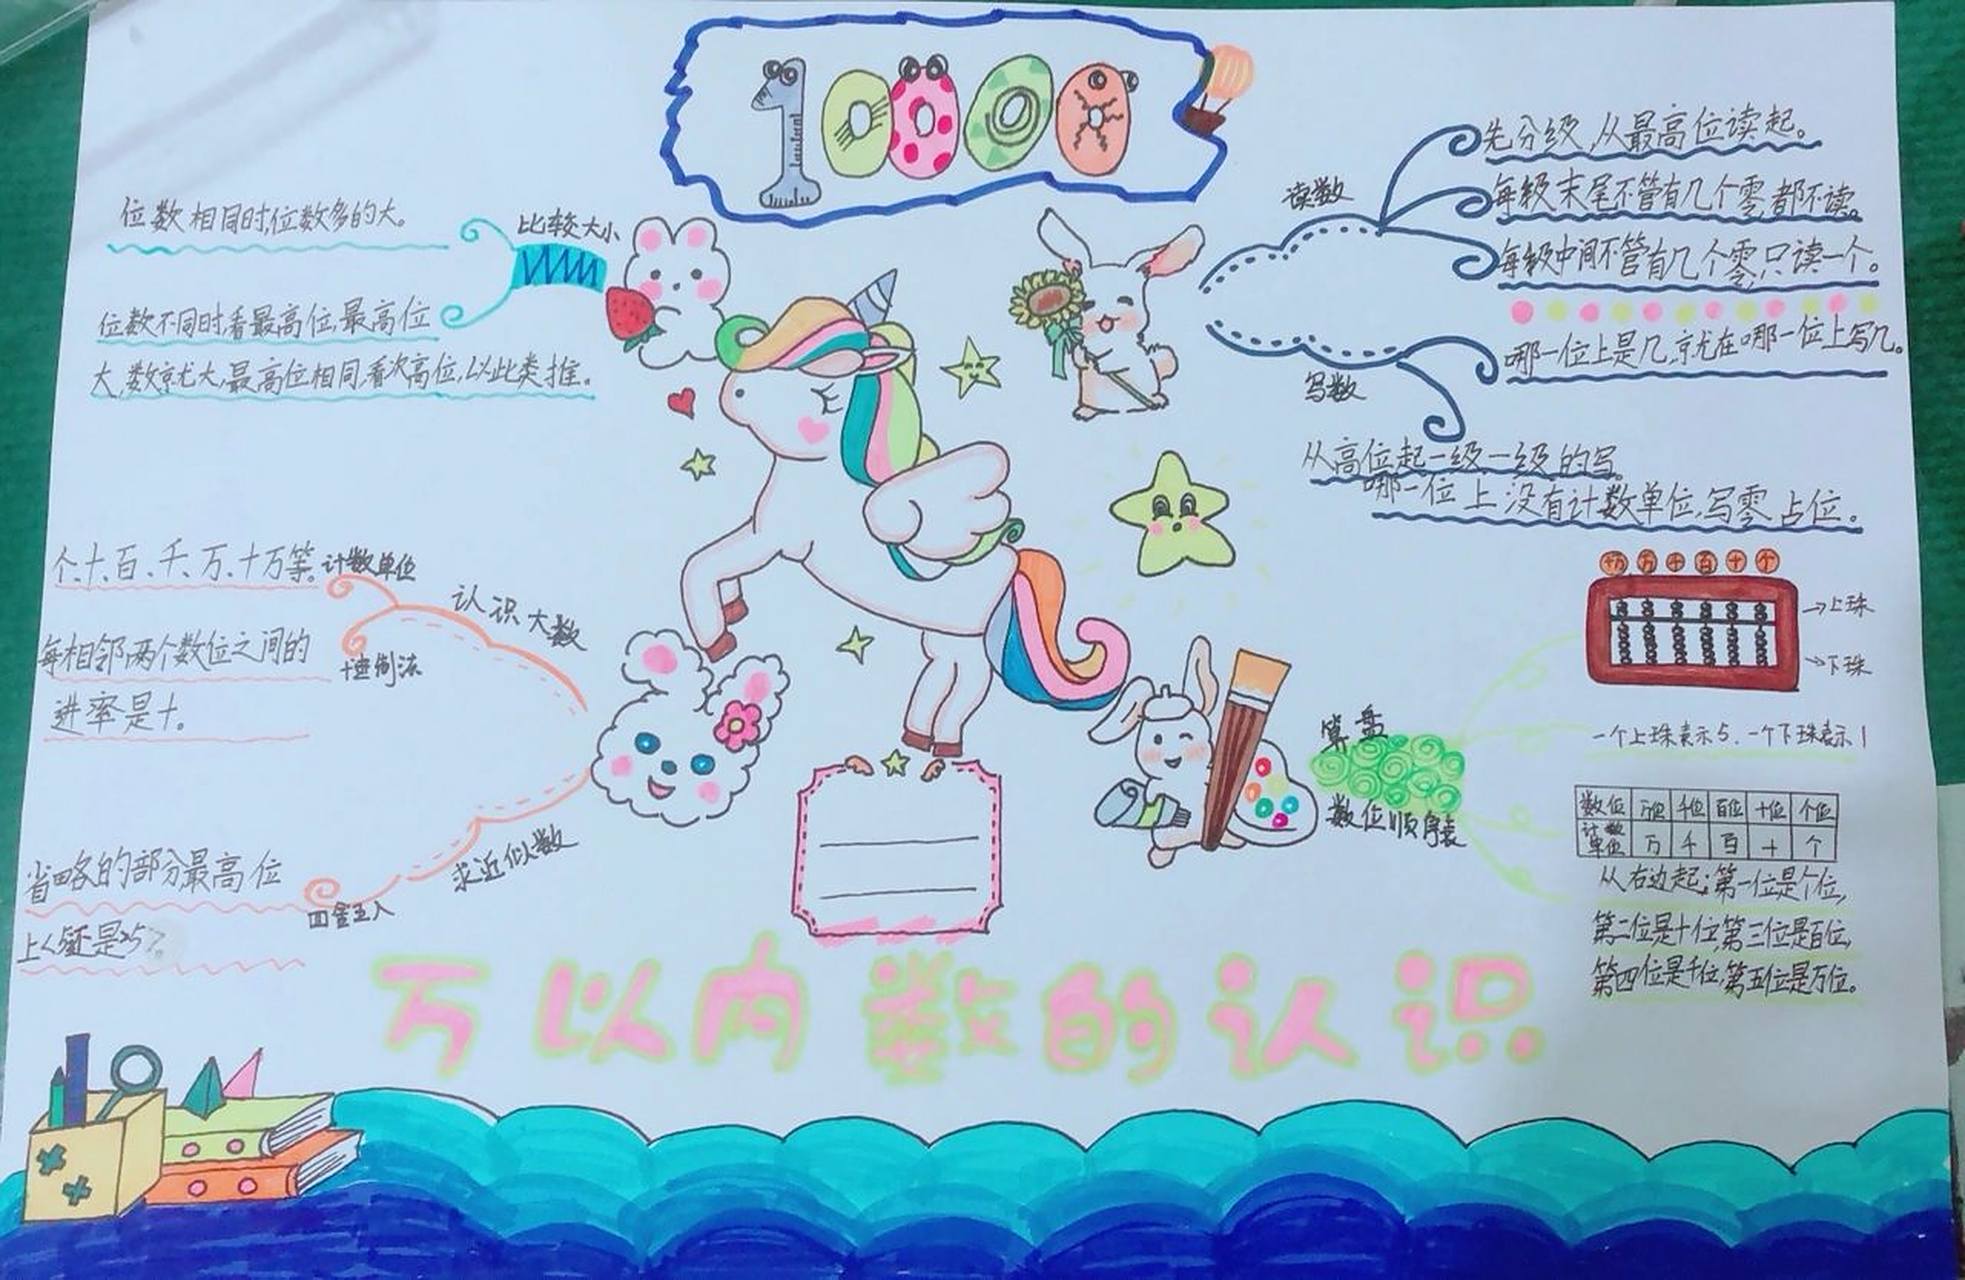 10000
比较大小
位数相同时,位数多的大。
位数不同时,看最高位,最高位
大,数就大,最高位相同,看次高位,以此类推。
读数
先分级,从最高位读起。
每级末尾不管有几个零,都不读。
每级中间不管有几个零,只读一个。
写数
哪一位上是几,就在哪一位上写几。
从高位起一级一级的写。
哪一位上没有计数单位,写零占位。
认识大数
计数单位
个、十、百、千、万、十万等。
每相邻两个数位之间的
进率是十。
求近似数
四舍五入
省略的部分最高位
算盘
十万 万 千 百 十 个
→上珠
→下珠
一个上珠表示5.一个下珠表示1
数位顺序表
数位 万位 千位 百位 十位 个位
计数单位 万 千 百 十 个
从右边起:第一位是个位,
第二位是十位,第三位是百位,
第四位是千位,第五位是万位。
万以内数的认识